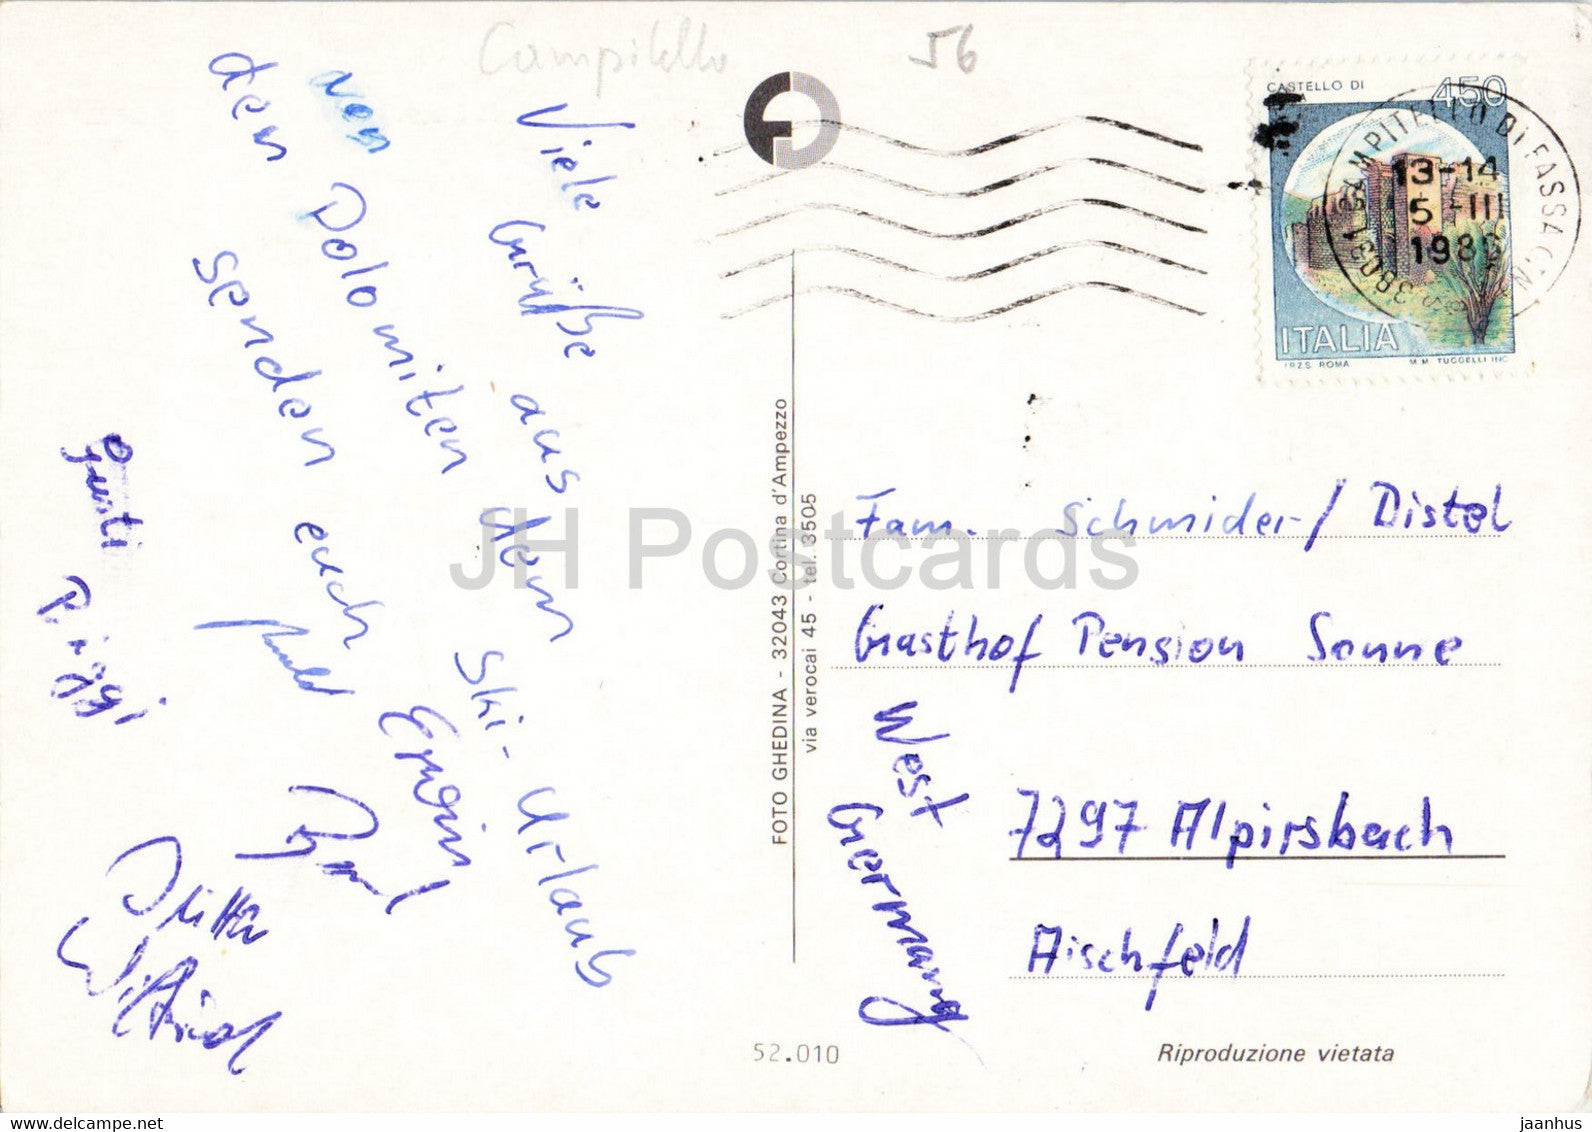 Campitello
56
Viele Grüße aus dem Ski-Urlaub
von Dolomiten
den
senden euch
Erwin
Gusti
P. iggi
Jutta
Wilfried
FOTO GHEDINA - 32043 Cortina d'Ampezzo
via verocai 45 - tel. 3505
52.010
CASTELLO DI
450
ITALIA
I.P.Z.S. ROMA
M.M. TUCCELLI INC.
38031 CAMPITELLO DI FASSA (TN)
13-14
5-III
1986
Fam. Schmider/Distel
Gasthof Pension Sonne
West Germany
7297 Alpirsbach
Aischfeld
Riproduzione vietata
JH Postcards
www.delcampe.net
jaanhus